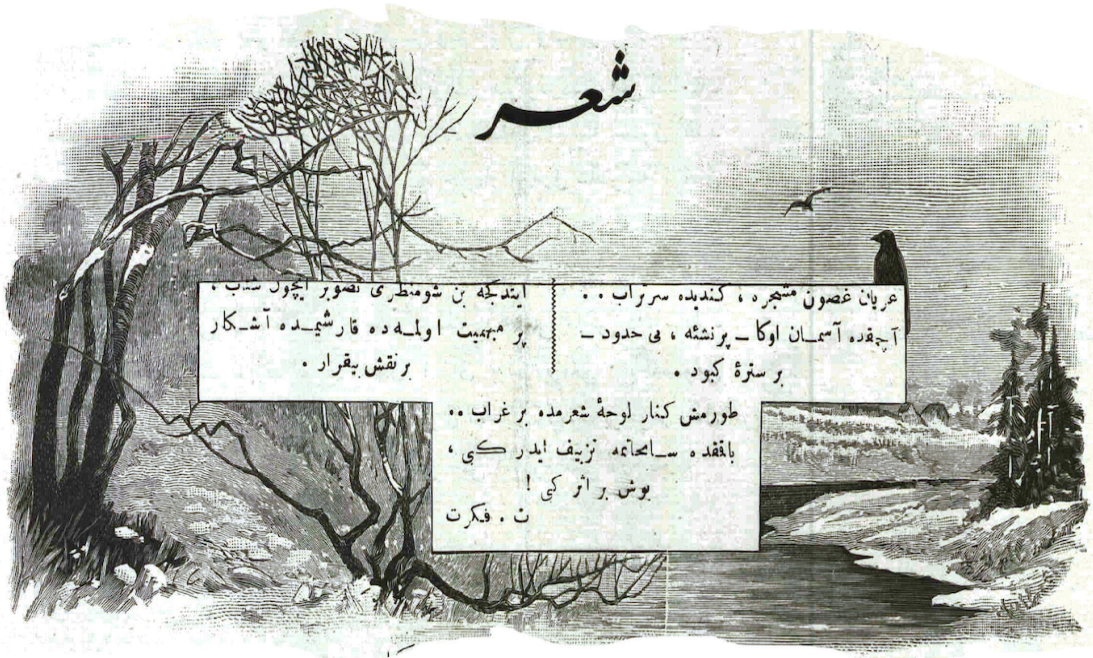 شعر
عریان غصون مشجره ، کندیده سرتراب . .
آچقده آسمان اوکا ــ پرنشئه ، بی حدود ــ
بر سترهٔ کبود .
ایتدکجه بن شومنظری تصویر ایچون شتاب ،
پر مبهمیت اولمه‌ده قارشیمده آشکار
بر نقش بیقرار .
طورمش کنار لوحهٔ شعرمده بر غراب ..
باققده سانحاتمه تزییف ایدر کبی ،
بوش بر اثر کبی !
ت . فکرت